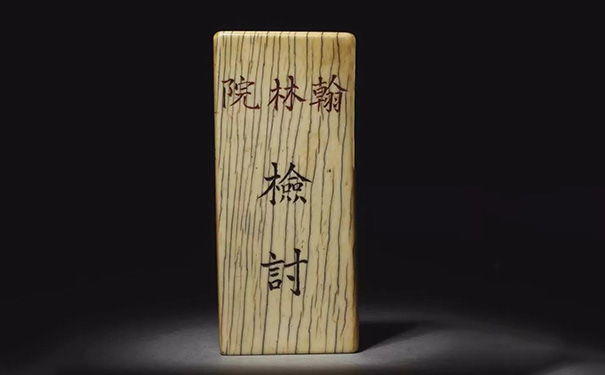 翰林院
檢
討